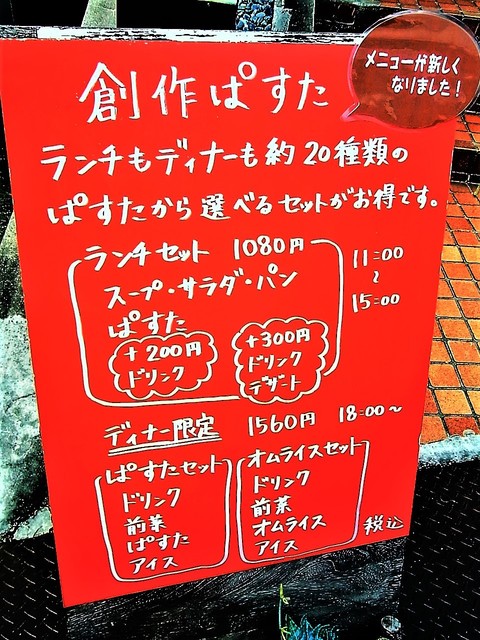 メニューが新しく
なりました！
創作ぱすた
ランチもディナーも約20種類の
ぱすたから選べるセットがお得です。
ランチセット 1080円
11:00
~
15:00
スープ・サラダ・パン
ぱすた
+200円
ドリンク
+300円
ドリンク
デザート
ディナー限定 1560円 18:00~
ぱすたセット
ドリンク
前菜
ぱすた
アイス
オムライスセット
ドリンク
前菜
オムライス
アイス
税込